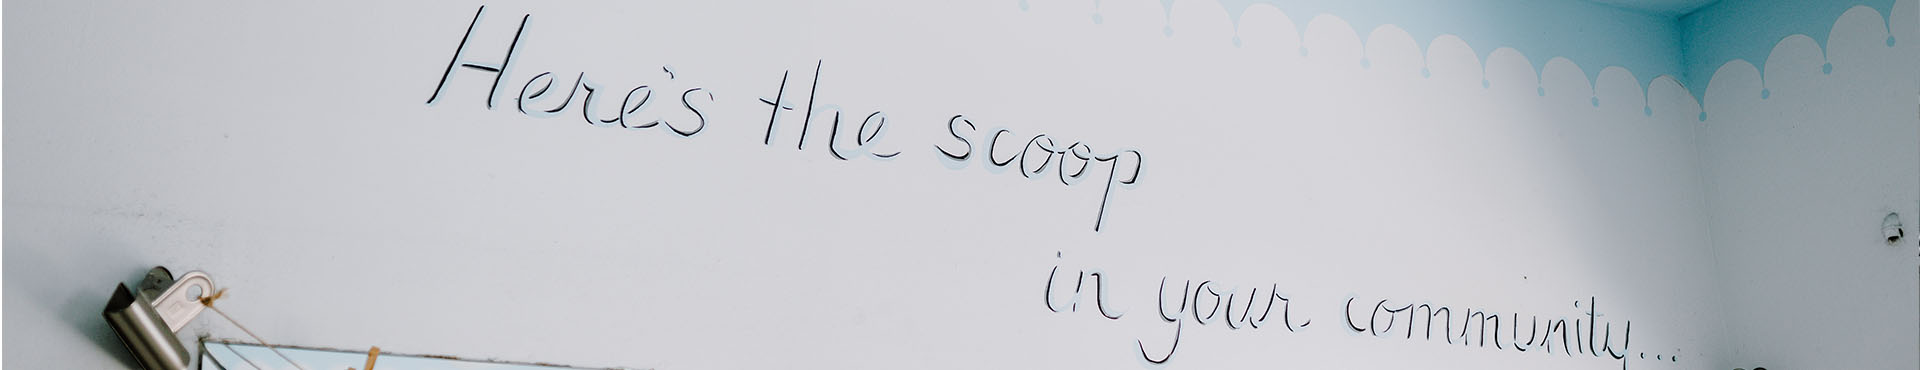 Here's the scoop
in your community...